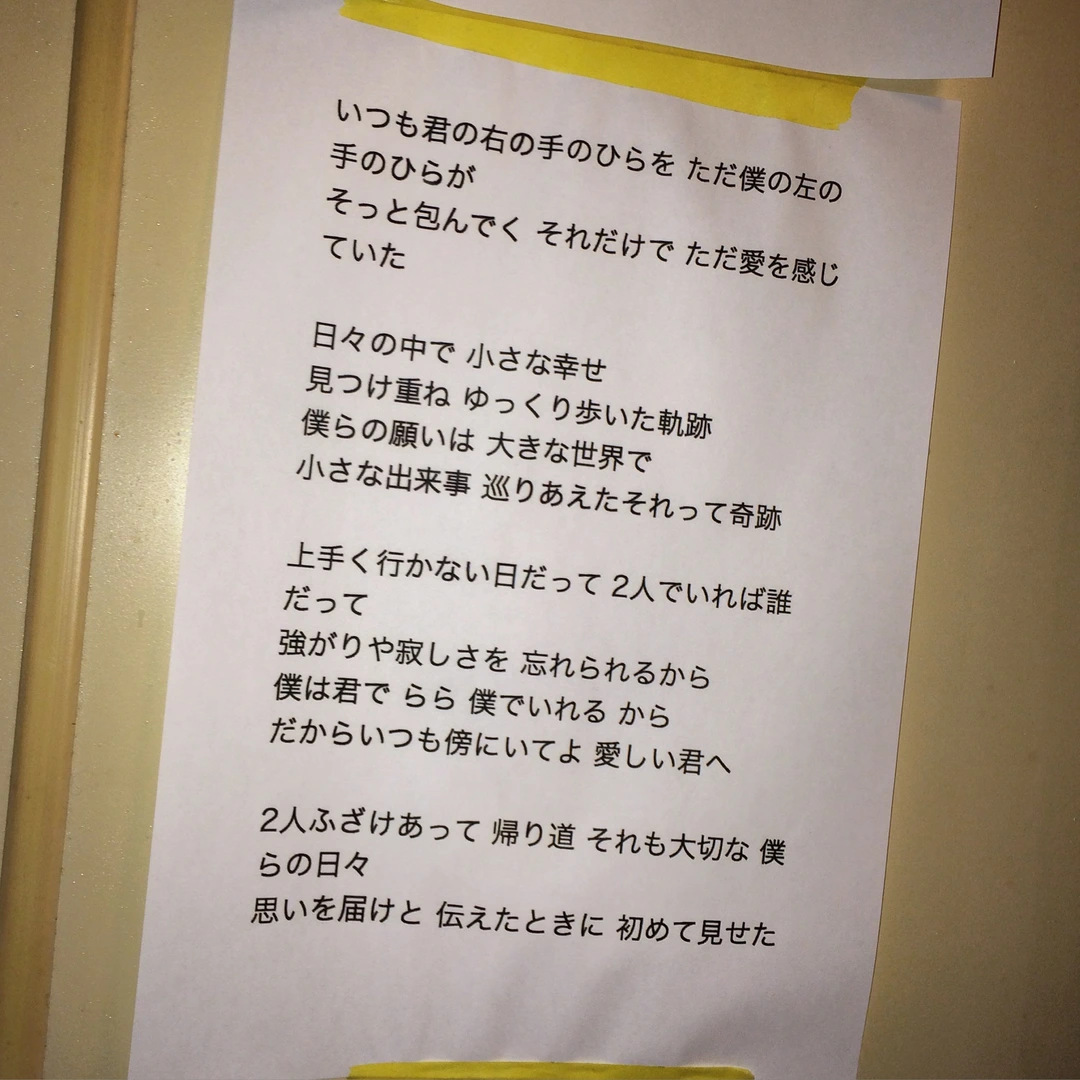 いつも君の右の手のひらを ただ僕の左の
手のひらが
そっと包んでく それだけで ただ愛を感じ
ていた
日々の中で 小さな幸せ
見つけ重ね ゆっくり歩いた軌跡
僕らの願いは 大きな世界で
小さな出来事 巡りあえたそれって奇跡
上手く行かない日だって 2人でいれば誰
だって
強がりや寂しさを 忘れられるから
僕は君で らら 僕でいれる から
だからいつも傍にいてよ 愛しい君へ
2人ふざけあって 帰り道 それも大切な 僕
らの日々
思いを届けと 伝えたときに 初めて見せた